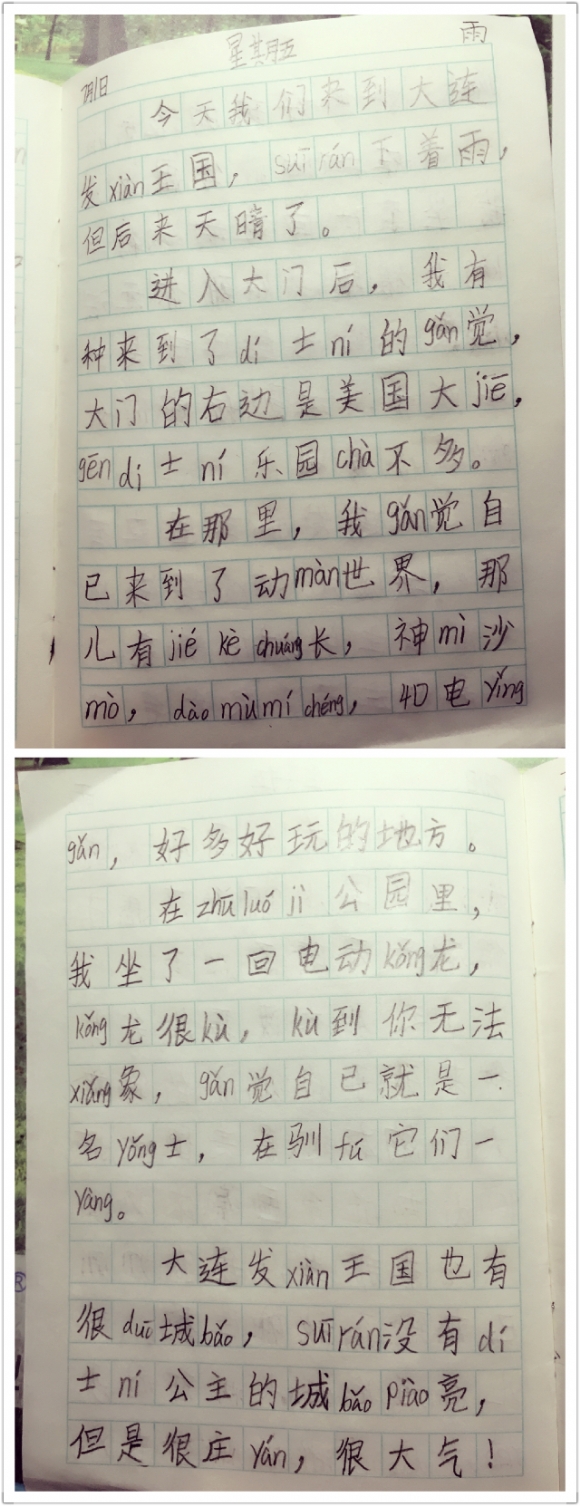 星期五 雨
7月1日
今天我们来到大连
发xiàn王国，suī rán下着雨，
但后来天晴了。
进入大门后，我有
种来到了dí士ní的gǎn觉，
大门的右边是美国大jiē，
gēn dí士ní乐园chà不多。
在那里，我gǎn觉自
已来到了动màn世界，那
儿有jié kè chuáng长，神mì沙
mò，dào mù mí chéng，4D电yǐng
gǎn，好多好玩的地方。
在zhū luó jì公园里，
我坐了一回电动kǒng龙，
kǒng龙很kù，kù到你无法
xiǎng象，gǎn觉自已就是一
名yǒng士，在驯fú它们一
yàng。
大连发xiàn王国也有
很duī城bǎo，suī rán没有dí
士ní公主的城bǎo piào亮，
但是很庄yán，很大气！